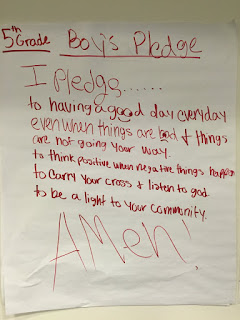 5th Grade Boy's Pledge
I Pledge......
to having a good day everyday
even when things are bad & things
are not going your way.
to think positive when negative things happen
to carry your cross & listen to god
to be a light to your community.
AMen!